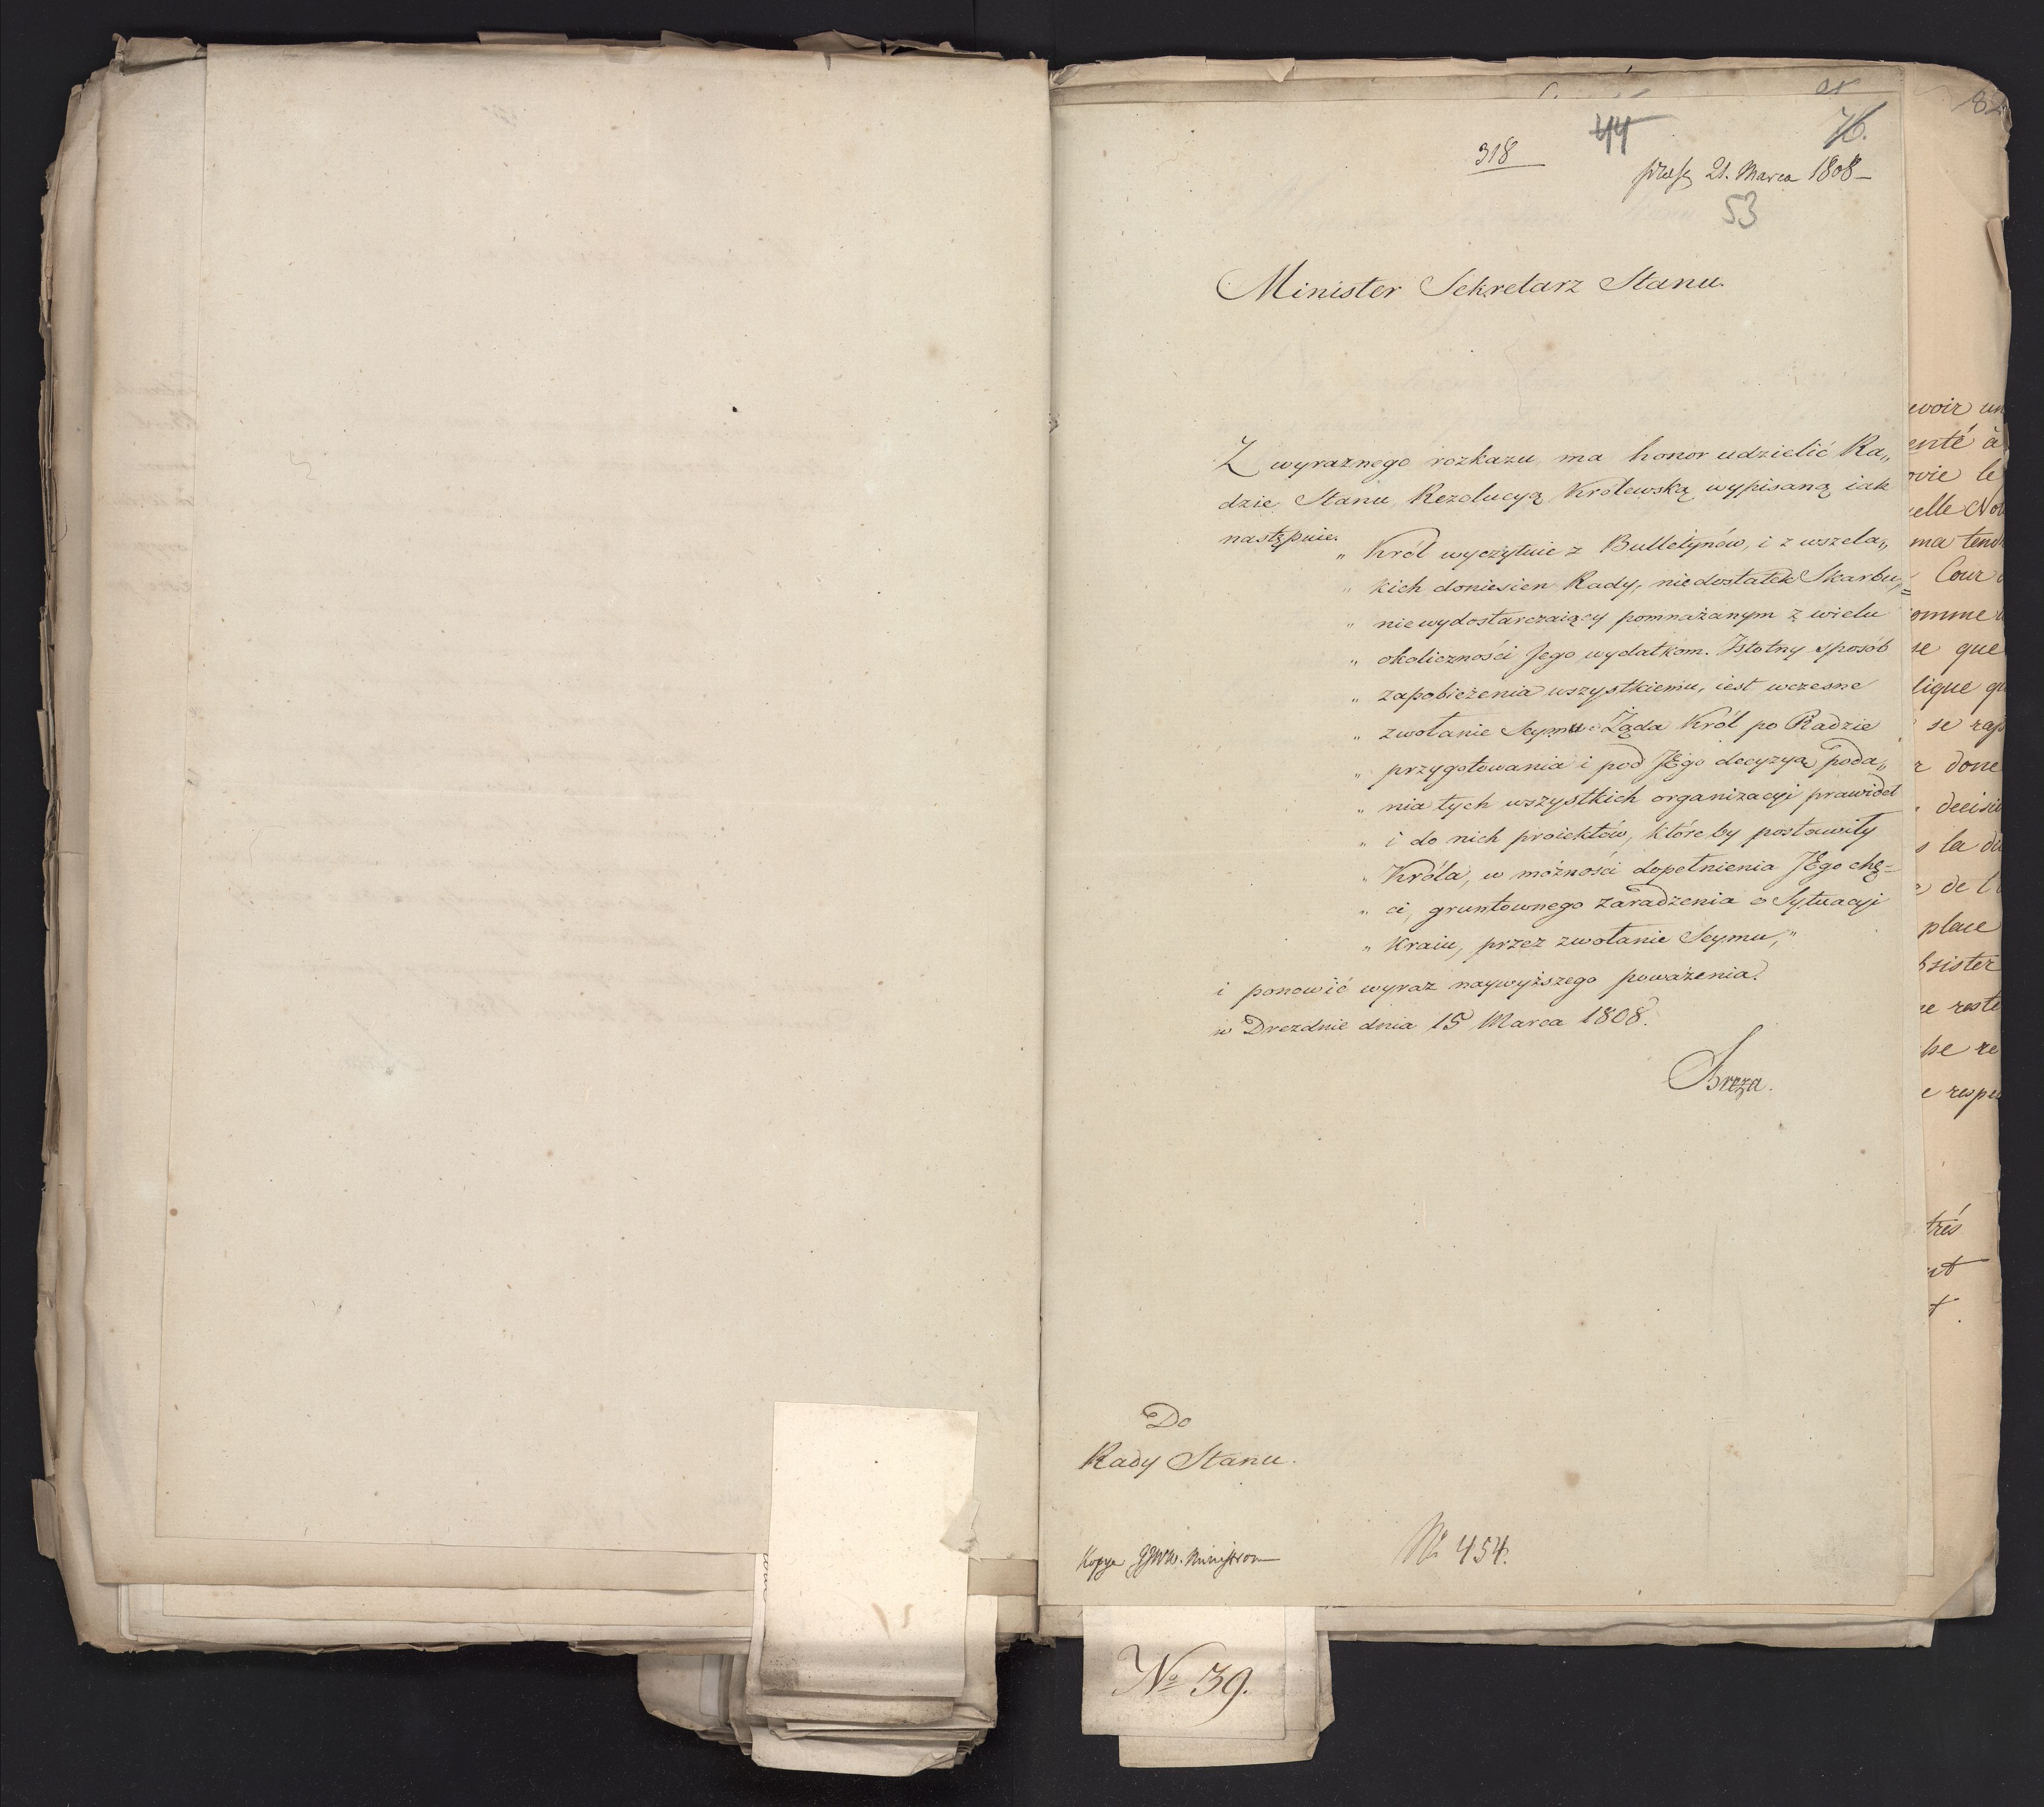 318
44
76.
pres. 21. Marca 1808
53
Minister Sekretarz Stanu.
Z wyraznego rozkazu ma honor udzielić Ra„
dzie Stanu, Rezolucyą Królewską wypisaną iak
następuie.
„ Król wyczytuie z Bulletynów, i z wszela„
„ kich doniesien Rady, niedostatek Skarbu,
„ niewydostarczaiący pomnażanym z wielu
„ okoliczności Jego wydatkom. Istotny sposób
„ zapobieżenia wszystkiemu, iest wczesne
„ zwołanie Seymu. Żąda Król po Radzie
„ przygotowania i pod JEgo decyzyą poda„
„ nia tych wszystkich organizacyi prawideł
„ i do nich proiektów, któreby postawiły
„ Króla, w możności dopełnienia JEgo chę=
„ ci, gruntownego zaradzenia o Sytuacyi
„ Kraiu, przez zwołanie Seymu,„
i ponowić wyraz naywyższego poważenia.
w Dreznie dnia 15 Marca 1808.
Breza.
Do
Rady Stanu.
Kopya JJWW. Ministrom
No 454.
No 39.
evoir un
enté à
ovie le
elle Nou
ma tend
Cour
omme
se que
lique qu
se rap
r done
decisio
s la di
de l
place
bsister
ne reste
se re
e respe
très